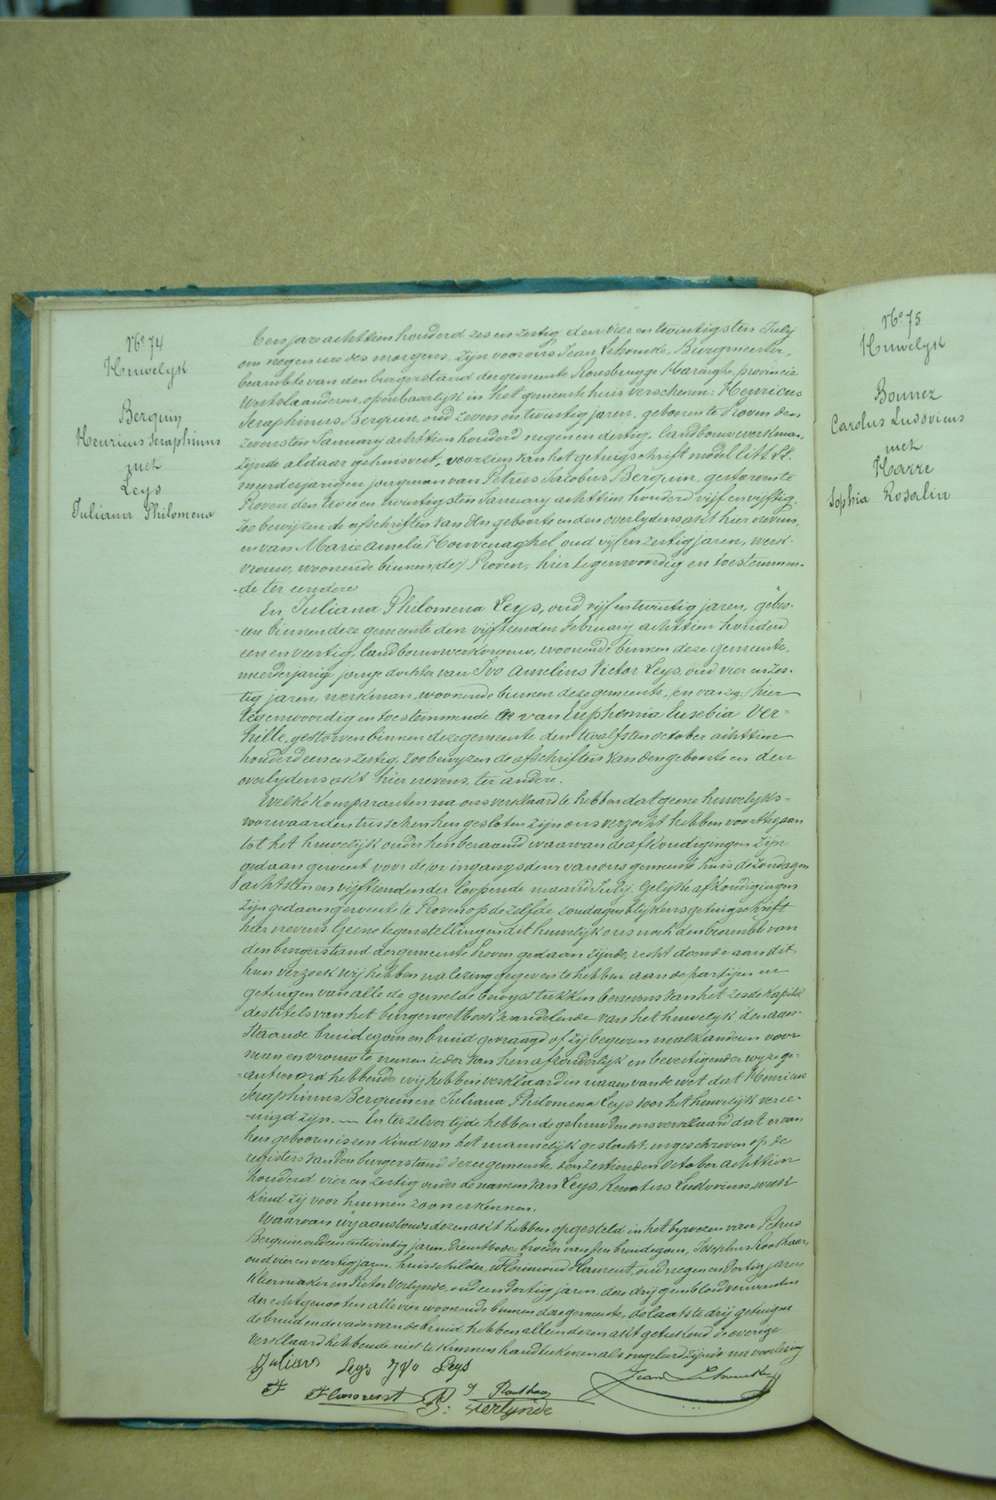 No 74
Huwelyk
Berquin
Henricus Seraphinus
met
Leys
Juliana Philomena
Een jare achttien honderd zes en zestig den vier en twintigsten July
om negen ure des morgens, zyn voor ons Jean Burgmeester,
beambte van den burgerstand der gemeente Rousbrugge Haringhe, provincie
Westvlaanderen, openbaarlyk in het gemeente huis verschenen: Henricus
Seraphinus Berquin, oud zeven en twintig jaren, geboren te Proven den
zevensten January achttien honderd negen en dertig, landbouwwerkman,
zynde aldaar gehuisvest, voorzien van het getuigschrift model litt.
meerderjarigen jongman van Petrus Jacobus Berquin, gestorven te
Proven den twee en twintigsten January achttien honderd vyf en vyftig,
zoo bewyzen de afschriften van den geboorte en den overlydens akt hier nevens,
en van Marie Amelie Houvenaghel oud vyf en zestig jaren, werk-
vrouw, woonende binnen Proven, hier tegenwoordig en toestemmen-
de ter eendere
En Juliana Philomena Leys, oud vyf en twintig jaren, gebo-
ren binnen deze gemeente den vyftienden February achttien honderd
een en veertig, landbouwwerkvrouw, woonende binnen deze gemeente,
meerderjarige jonge dochter van Ivo Amelius Victor Leys, oud vier en zes-
tig jaren, werkman, woonende binnen deze gemeente, en van zy hier
tegenwoordig en toestemmende en van Euphemia Eusebia Ver-
hille, gestorven binnen deze gemeente den twalfsten october achttien
honderd een en zestig, zoo bewyzen de afschriften van den geboorte en den
overlydens akt hier nevens, ter andere.
Welke komparanten na ons verklaard te hebben dat geene huwelyks-
voorwaarden tusschen hen gesloten zyn ons verzocht hebben voort te gaan
tot het huwelyk onder hen beraamd waarvan de afkondigingen zyn
gedaan geweest voor de ingangsdeur van ons gemeente huis de zondagen
achtsten en vyftienden der loopende maand July. Gelyke afkondigingen
zyn gedaan geweest te Proven op de zelfde zondagen blykens getuigschrift
hier nevens. Geene tegenstellingen dit huwelyk ons noch den beambte van
den burgerstand der gemeente Proven gedaan zynde, recht doende aan dit
hun verzoek wy hebben na lezing gegeven te hebben aan de partyen en
getuigen van alle de gemelde bewysstukken benevens van het zesde kapittel
des titels van het burgerwetboek handelende van het huwelyk den aan-
staande bruidegom en bruid gevraagd of zy begeren malkanderen voor
man en vrouw te nemen ieder van hen afzonderlyk en bevestigender wyze ge-
antwoord hebbende wy hebben verklaard in naam van de wet dat Henricus
Seraphinus Berquin en Juliana Philomena Leys door het huwelyk veree-
nigd zyn. — En ter zelver tyde hebben de gehuwden ons verklaard dat er van
hen geboren is een kind van het mannelyk geslacht, ingeschreven op de
registers van den burgerstand dezer gemeente, den zestienden October achttien
honderd vier en zestig onder de namen van Leys, Ludovicus, welk
kind zy voor hunnen zoon erkennen.
Waarvan wy aanstonds dezen akt hebben opgesteld in het bywezen van Petrus
Berquin oud en twintig jaren, dienstbode, broeder van den bruidegom, Josephus
oud vier en veertig jaren, huisschilder, Florimond Haurent, oud negen en veertig jaren
kleermaker en Victor Verlynde, oud een en dertig jaren, den dry geen bloedverwanten
der echtgenooten alle vier woonende binnen deze gemeente, de laatste dry getuigen
de bruid en de vader van de bruid hebben alleen dezen akt geteekend de overige
verklaard hebbende niet te kunnen handteekenen als ongeleerd zynde na voorlezing
Juliana Leys Ivo Leys
Jean
Verlynde
No 75
Huwelyk
Bonnez
Carolus Ludovicus
met
Harre
Sophia Rosalia